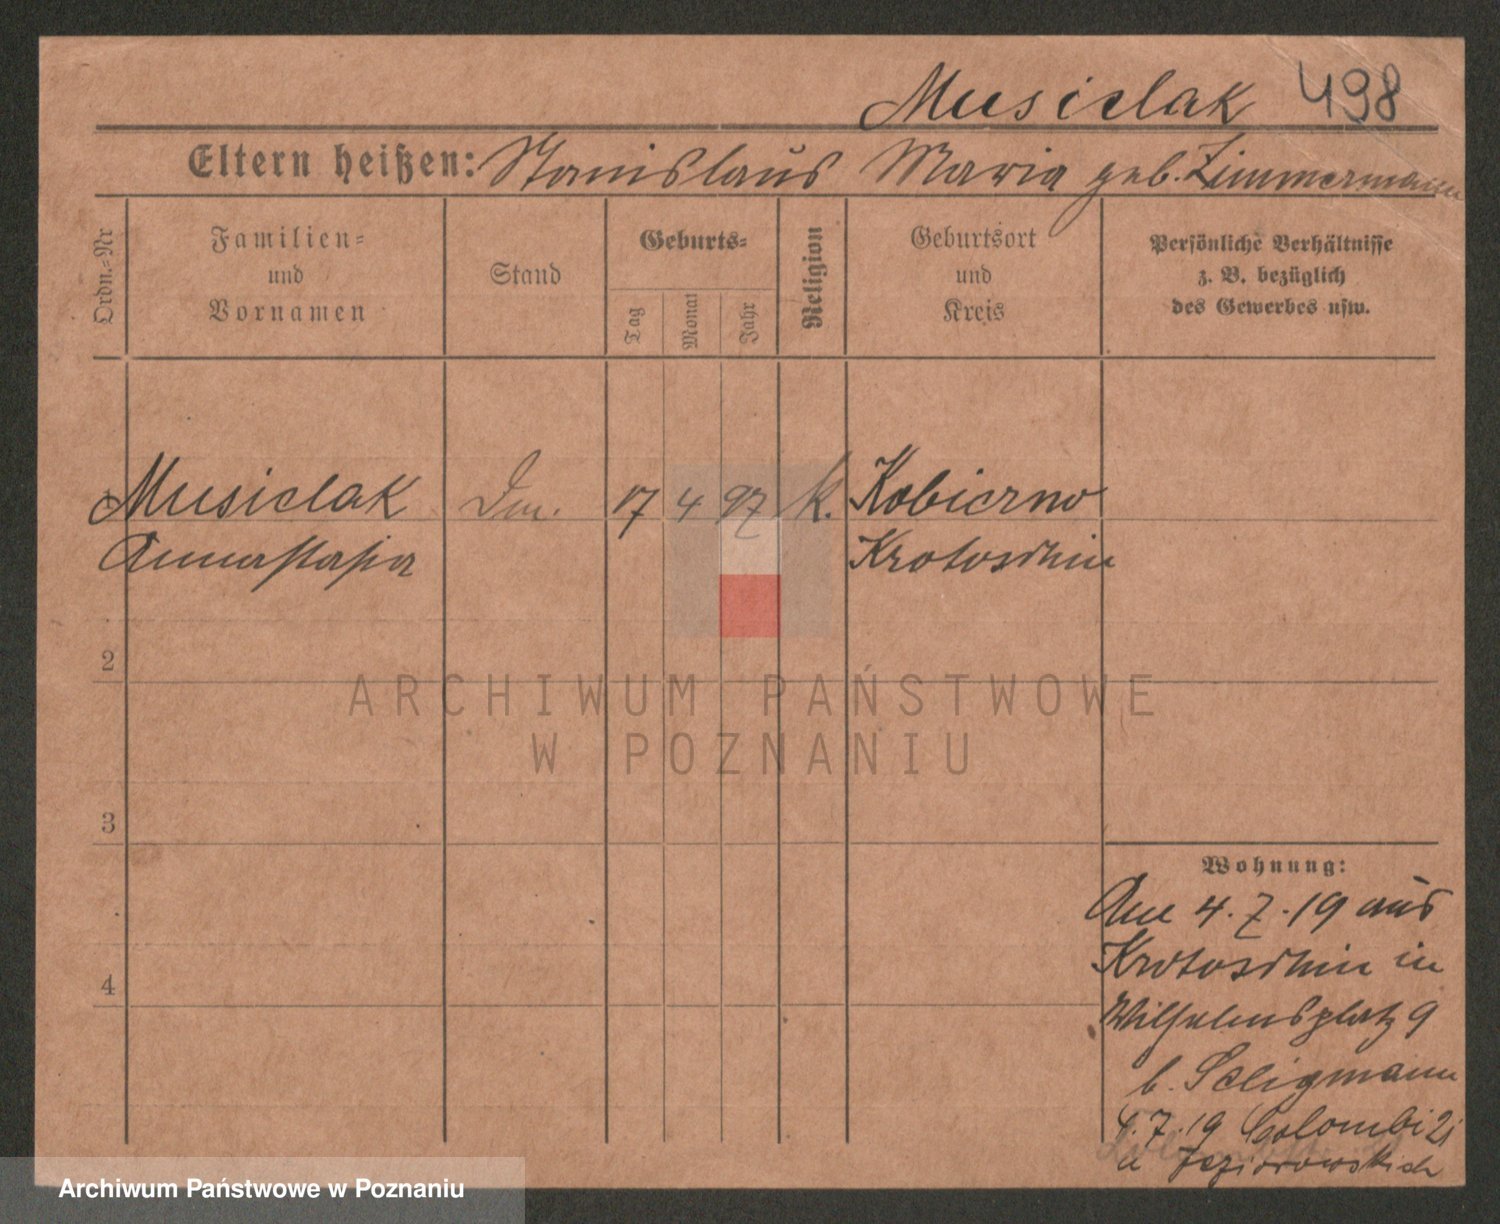 Musielak 498
Eltern heißen: Stanislaus Maria geb. Zimmermann
Ordn.-Nr
Familien-
und
Vornamen
Stand
Geburts-
Tag
Monat
Jahr
Religion
Geburtsort
und
Kreis
Persönliche Verhältnisse
z. B. bezüglich
des Gewerbes usw.
Musielak
17 4 97 k. Kobierno
Annastasia
Krotoschin
2
ARCHIWUM PAŃSTWOWE
W POZNANIU
3
4
Wohnung:
4.7.19 aus
Krotoschin in
Wilhelmsplatz 9
b. Seligmann
4.7.19
Archiwum Państwowe w Poznaniu